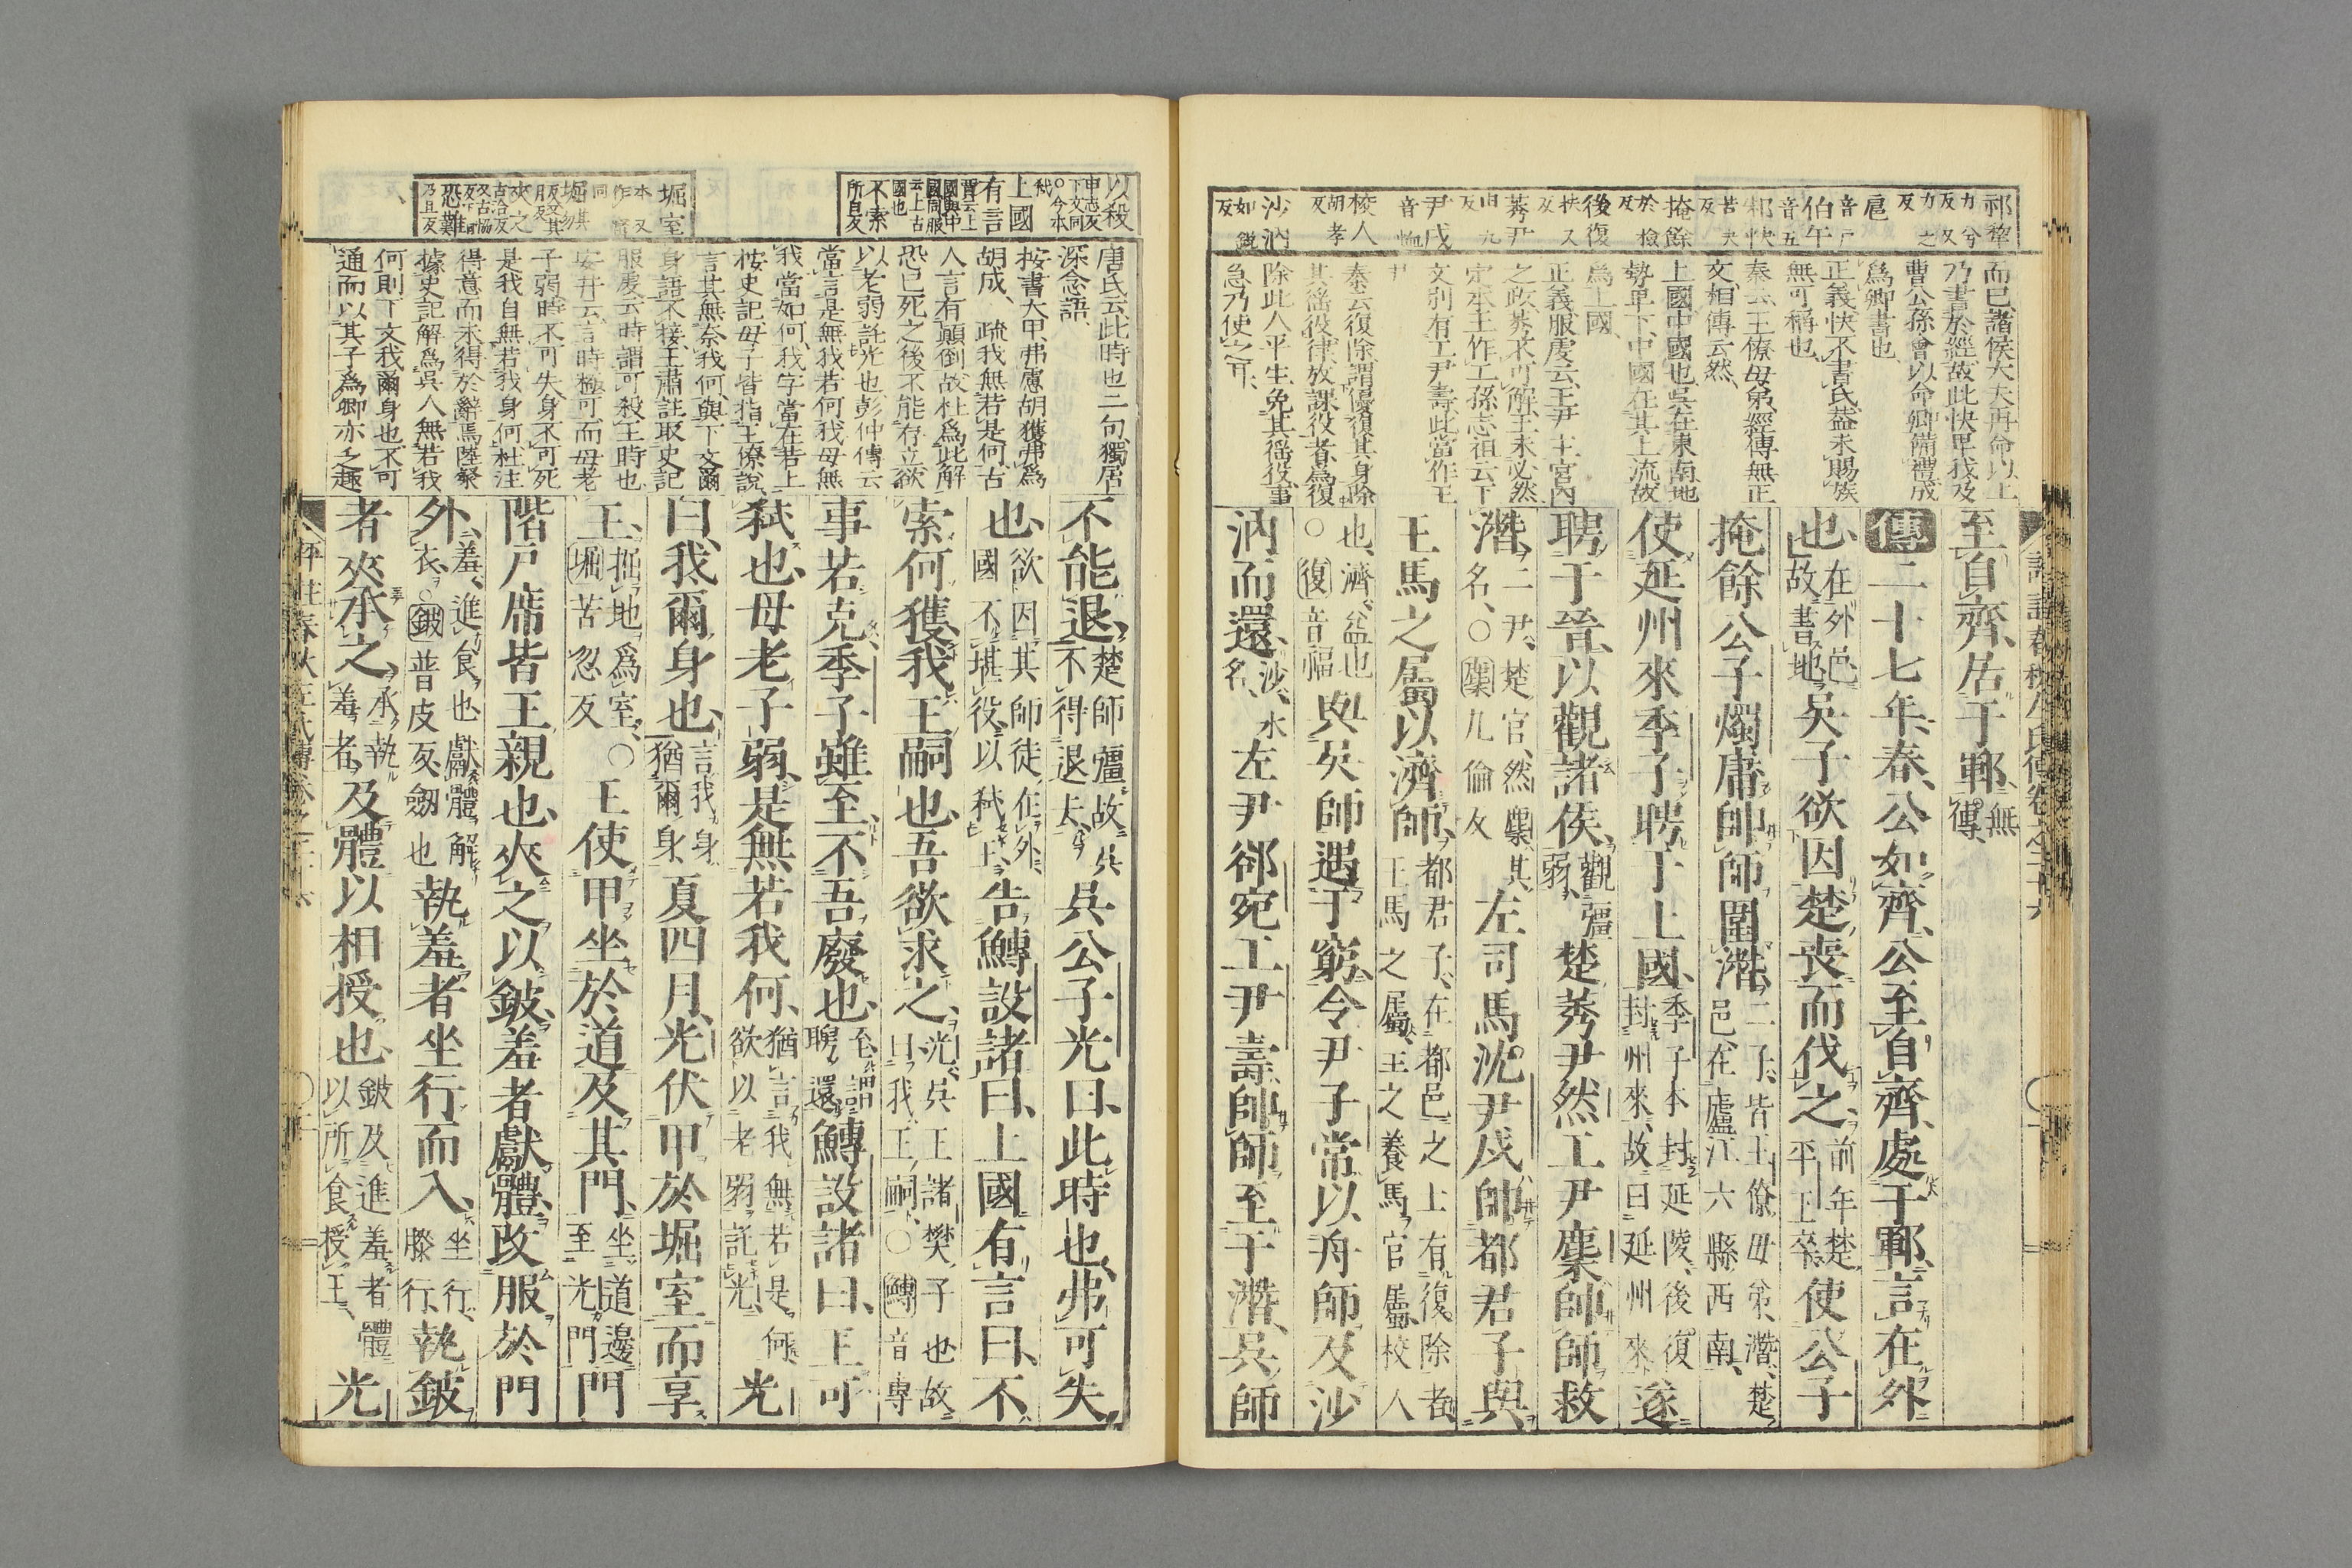 祁犂力兮反又力之反
扈音戶
伯午音五
祁快苦夬反
掩餘於檢反
後復扶又反
莠尹由九反
尹戌音恤
校人胡孝反
沙汭如銳反
而已諸侯大夫再命以上
乃書於經故此快卑我及
曹公孫會以命卿備禮成
爲卿書也
正義快不書氏蓋未賜族
無可稱也
秦云王僚母弟經傳無正
文相傳云然
上國中國也吳在東南地
勢卑下中國在其上流故
爲上國
正義服虔云王尹主宮內
之政莠不可解王未必然
定本王作工孫志祖云下
文別有工尹壽此當作工
尹
秦云復除謂優復其身除
其徭役律放課役者爲復
除此人平生免其徭役事
急乃使之耳
至自齊居于鄆無傳
傳二十七年春公如齊公至自齊處于鄆言在外
也在外邑故書地吳子欲因楚喪而伐之前年楚平王卒使公子
掩餘公子燭庸帥師圍潛二子皆王僚毋弟潛楚邑在廬江六縣西南
使延州來季子聘于上國季子本封延陵後復封州來故曰延州來遂
聘于晉以觀諸侯觀彊弱楚莠尹然工尹麇帥師救
潛二尹楚官然麇其名○麇九倫反左司馬沈尹戌帥都君子與
王馬之屬以濟師都君子在都邑之士有復除者王馬之屬王之養馬官屬校人
也濟益也○復音福與吳師遇于窮令尹子常以舟師及沙
汭而還沙水名左尹郤宛工尹壽帥師至于潛吳師
以殺申志反下文同○今本弒
上國
有言賈云上國與中國同服云上古國也
不索所白反
堀室本又作窟同
堀其勿反又其
夾之古洽反又古協反下同
恐難乃旦反
唐氏云此時也二句獨居
深念語
按書大甲弗慮胡獲弗爲
胡成疏我無若是何古
人言有顛倒故杜爲此解
恐己死之後不能存立欲
以老弱託光也彭仲傳云
當言是無我若何我母無
我當如何我字當在若上
桉史記母子皆指王僚說
言其無奈我何與下文爾
身語不接王肅註取史記
服虔云時謂可殺王時也
安井云言時極可而母老
子弱時不可失身不可死
是我自無若我身何杜注
得意而未得於辭焉陸粲
據史記解爲吳人無若我
何則下文我爾身也不可
通而以其子爲卿亦乏趣
不能退楚師彊故吳不得退去吳公子光曰此時也弗可失
也欲因其師徒在外國不堪役以弒王告鱄設諸曰上國有言曰不
索何獲我王嗣也吾欲求之光吳王諸樊子也故曰我王嗣○鱄音專
事若克季子雖至不吾廢也至謂聘還鱄設諸曰王可
弒也母老子弱是無若我何猶言我無若是何欲以老弱託光光
曰我爾身也言我身猶爾身夏四月光伏甲於堀室而享
王掘地爲室○堀苦忽反王使甲坐於道及其門坐道邊至光門門
階戶席皆王親也夾之以鈹羞者獻體改服於門
外羞進食也獻體解衣○鈹普皮反劒也執羞者坐行而入坐行膝行執鈹
者夾承之承執羞者及體以相授也鈹及進羞者體以所食授王光